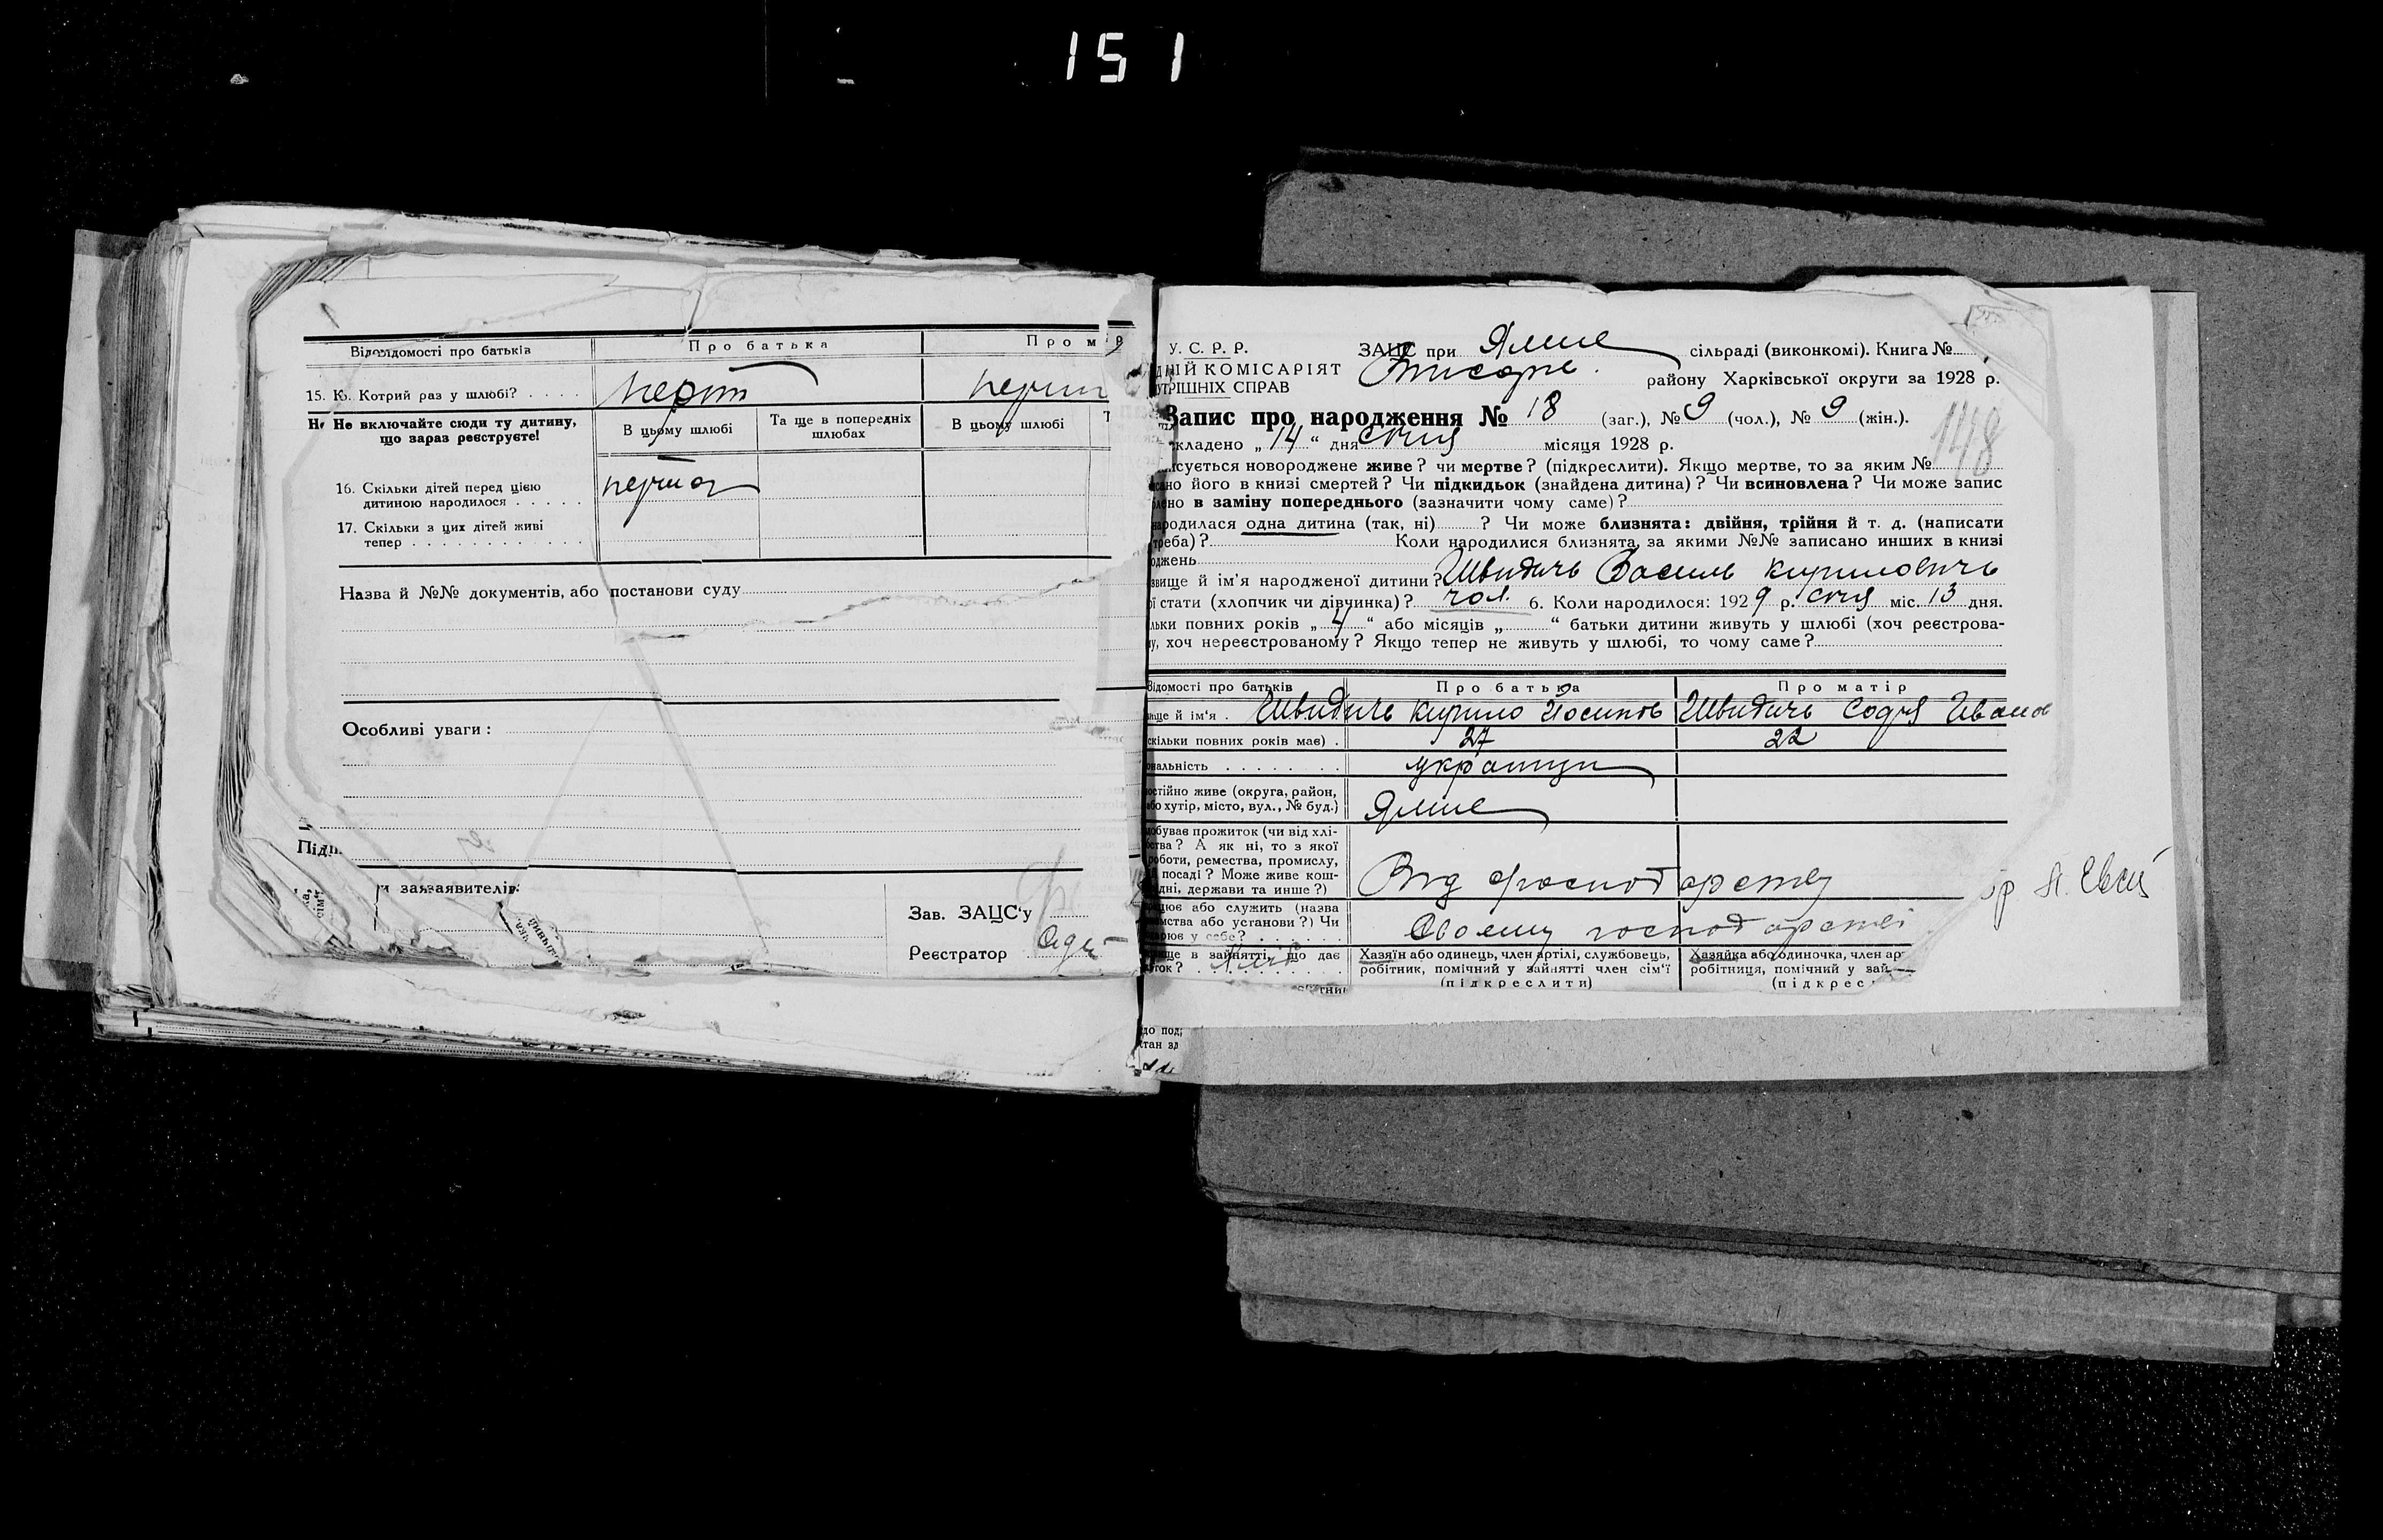 151
Відомості про батьків
Про батька
Про м
15. Котрий раз у шлюбі?
Не включайте сюди ту дитину,
що зараз реєструєте!
В цьому шлюбі
Та ще в попередніх
шлюбах
В цьому шлюбі
16. Скільки дітей перед цією
дитиною народилося
перша
17. Скільки з цих дітей живі
тепер
Назва й №№ документів, або постанови суду
Особливі уваги:
Підп
Зав. ЗАЦС'у
Реєстратор
У. С. Р. Р.
ДНІЙ КОМІСАРІЯТ
УТРІШНІХ СПРАВ
ЗАЦС при сільраді (виконкомі). Книга №
району Харківської округи за 1928 р.
148
Запис про народження № 18 (заг.), № 9 (чол.), № 9 (жін.).
кладено „ 14 “ дня січня місяця 1928 р.
сується новороджене живе? чи мертве? (підкреслити). Якщо мертве, то за яким №
його в книзі смертей? Чи підкидьок (знайдена дитина)? Чи всиновлена? Чи може запис
в заміну попереднього (зазначити чому саме)?
народилася одна дитина (так, ні) ? Чи може близнята: двійня, трійня й т. д. (написати
треба)? Коли народилися близнята, за якими №№ записано инших в книзі
оджень
звище й ім'я народженої дитини? Швидичь Василь Кирилович
ї стати (хлопчик чи дівчинка)? чол. 6. Коли народилося: 1929 р. січня міс. 13 дня.
льки повних років „ 4 “ або місяців „ “ батьки дитини живуть у шлюбі (хоч реєстрова-
у, хоч нереєстрованому? Якщо тепер не живуть у шлюбі, то чому саме?
Відомості про батьків
Про батька
Про матір
ще й ім'я
Швидичь Кирило Йосипов
Швидичь Софія Іванов
скільки повних років має)
27
22
ональність
українци
остійно живе (округа, район,
або хутір, місто, вул., № буд.)
добуває прожиток (чи від хлі-
бства? А як ні, то з якої
роботи, ремества, промислу,
посаді? Може живе кош-
дні, держави та инше?)
Від господарству
цює або служить (назва
мства або установи?) Чи
рює у себе?
Своему господарстві
ще в зайнятті, що дає
ток?
Хазяїн або одинець, член артілі, службовець,
робітник, помічний у зайнятті член сім'ї
(підкреслити)
Хазяйка або одиночка, член ар
робітниця, помічний у зай
(підкрес
до под
тан зд